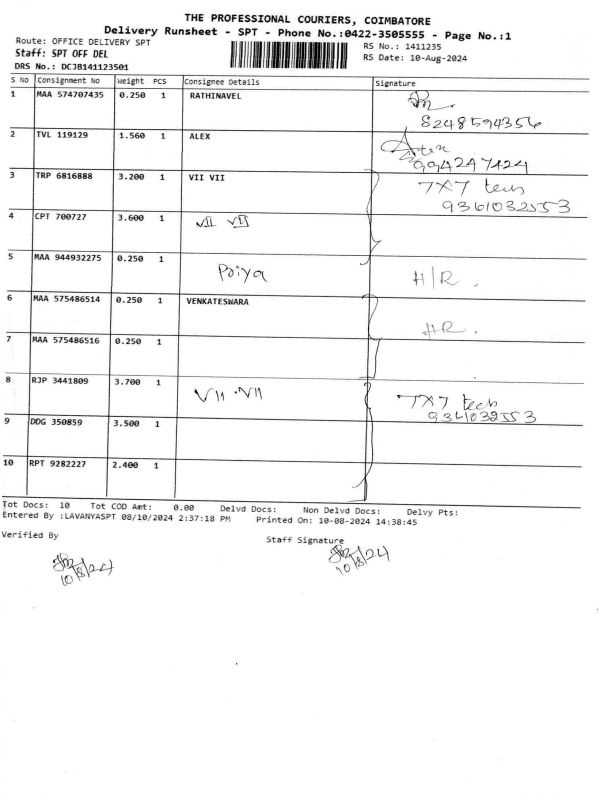 THE PROFESSIONAL COURIERS, COIMBATORE
Delivery Runsheet - SPT - Phone No.:0422-3505555 - Page No.:1
Route: OFFICE DELIVERY SPT
RS No.: 1411235
Staff: SPT OFF DEL
RS Date: 10-Aug-2024
DRS No.: DCJB141123501
S No Consignment No Weight PCS Consignee Details Signature
1 MAA 574707435 0.250 1 RATHINAVEL
8248594356
2 TVL 119129 1.560 1 ALEX
9942474424
3 TRP 6816888 3.200 1 VII VII 7X7 tech
9361032553
4 CPT 700727 3.600 1 VII VII
5 MAA 944932275 0.250 1 Priya H/R.
6 MAA 575486514 0.250 1 VENKATESWARA
HR.
7 MAA 575486516 0.250 1
8 RJP 3441809 3.700 1 VII VII 7X7 tech
9361032553
9 DDG 350859 3.500 1
10 RPT 9282227 2.400 1
Tot Docs: 10 Tot COD Amt: 0.00 Delvd Docs: Non Delvd Docs: Delvy Pts:
Entered By :LAVANYASPT 08/10/2024 2:37:18 PM Printed On: 10-08-2024 14:38:45
Verified By Staff Signature
10/8/24 10/8/24